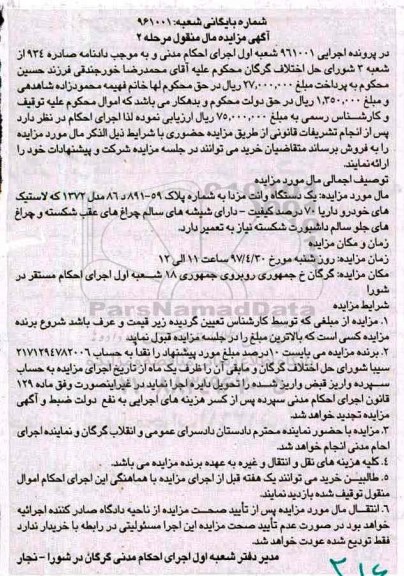 شماره بایگانی شعبه: ۹۶۱۰۰۱
آگهی مزایده مال منقول مرحله ۲
در پرونده اجرایی ۹۶۱۰۰۱ شعبه اول اجرای احکام مدنی و به موجب دادنامه صادره ۹۳۴ از
شعبه ۳ شورای حل اختلاف گرگان محکوم علیه آقای محمدرضا خورجندقی فرزند حسین
محکوم به پرداخت مبلغ ۲۷,۰۰۰,۰۰۰ ریال در حق محکوم لها خانم فهیمه محمودزاده شاهدهی
و مبلغ ۱,۳۵۰,۰۰۰ ریال در حق دولت محکوم و بدهکار می باشد که اموال محکوم علیه توقیف
و کارشناس رسمی به مبلغ ۷۵,۰۰۰,۰۰۰ ریال ارزیابی نموده لذا اجرای احکام در نظر دارد
پس از انجام تشریفات قانونی از طریق مزایده حضوری با شرایط ذیل الذکر مال مورد مزایده
را به فروش برساند متقاضیان خرید می توانند در جلسه مزایده شرکت و پیشنهادات خود را
ارائه نمایند.
توصیف اجمالی مال مورد مزایده
مال مورد مزایده: یک دستگاه وانت مزدا به شماره پلاک ۵۹-۸۹۱ د ۸۶ مدل ۱۳۷۲ که لاستیک
های خودرو داریا ۷۰ درصد کیفیت - دارای شیشه های سالم چراغ های عقب شکسته و چراغ
های جلو سالم داشبورت شکسته نیاز به تعمیر دارد.
زمان و مکان مزایده
زمان مزایده: روز شنبه مورخ ۹۷/۴/۳۰ ساعت ۱۱ الی ۱۲
مکان مزایده: گرگان خ جمهوری روبروی جمهوری ۱۸ شعبه اول اجرای احکام مستقر در
شورا
شرایط مزایده
۱. مزایده از مبلغی که توسط کارشناس تعیین گردیده زیر قیمت و عرف باشد شروع برنده
مزایده کسی است که بالاترین مبلغ را در جلسه مزایده قبول نماید
۲. برنده مزایده می بایست ۱۰درصد مبلغ مورد پیشنهاد را نقدا به حساب ۲۱۷۱۲۹۴۷۸۲۰۰۶
سیبا شورای حل اختلاف گرگان و مابقی آن را ظرف یک ماه از تاریخ اجرای مزایده به حساب
سپرده واریز قبض واریز شده را تحویل دایره اجرا نماید در غیراینصورت وفق ماده ۱۲۹
قانون اجرای احکام مدنی سپرده پس از کسر هزینه های اجرایی به نفع دولت ضبط و آگهی
مزایده تجدید خواهد شد.
۳. مزایده با حضور نماینده محترم دادستان دادسرای عمومی و انقلاب گرگان و نماینده اجرای
احام مدنی انجام خواهد شد.
۴. کلیه هزینه های نقل و انتقال و غیره به عهده برنده مزایده می باشد.
۵. طالبین خرید می توانند یک هفته قبل از اجرای مزایده با هماهنگی این اجرای احکام اموال
منقول توقیف شده بازدید نمایند.
۶. انتقال مال مورد مزایده پس از تأیید صحت مزایده از ناحیه دادگاه صادر کننده اجرائیه
خواهد بود در صورت عدم تأیید صحت مزایده این اجرا مسئولیتی در رابطه با خریدار ندارد
فقط تودیع شده عودت خواهد شد.
مدیر دفتر شعبه اول اجرای احکام مدنی گرگان در شورا - نجار
ParsNamadData